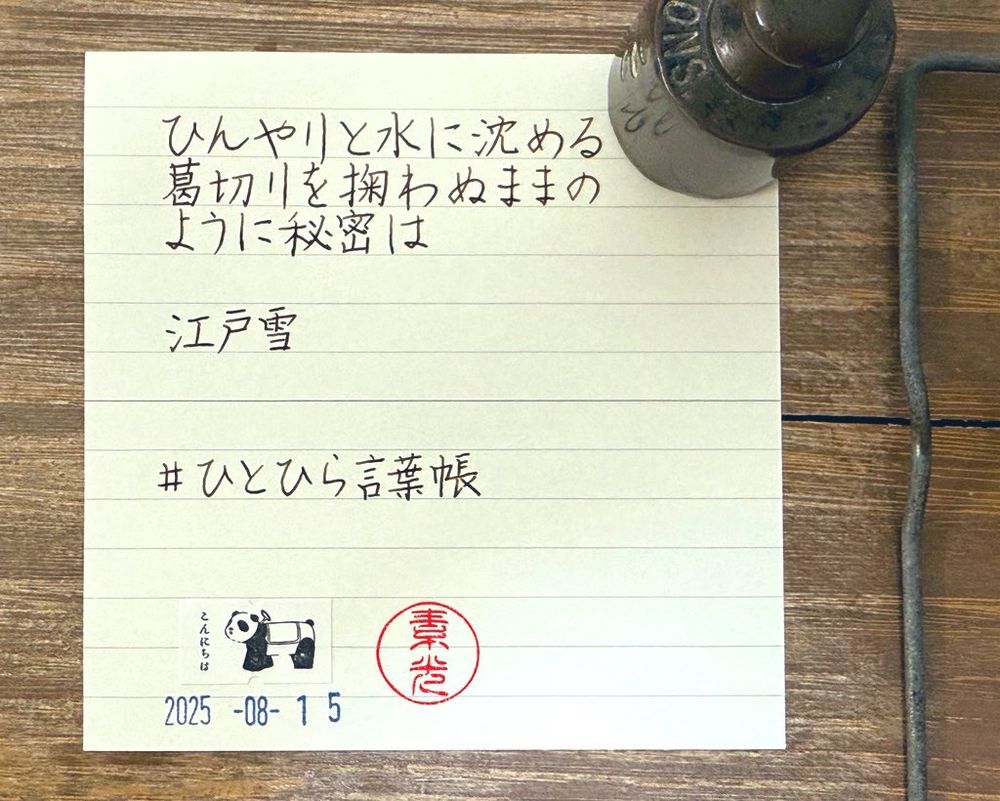 ひんやりと水に沈める
葛切りを掬わぬままの
ように秘密は
江戸雪
#ひとひら言葉帳
こんにちは
2025 -08- 15
素光
SNO